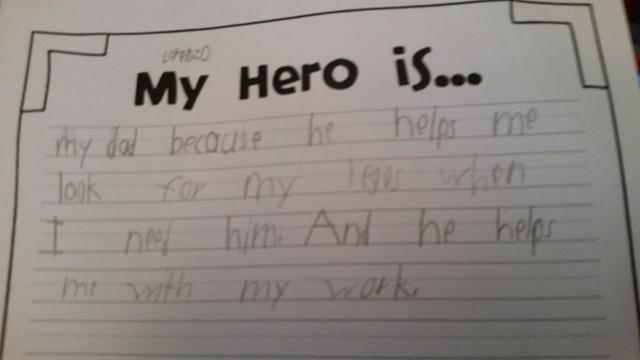 LORENZO
My Hero is...
my dad because he helps me
look for my legos when
I need him. And he helps
me with my work.